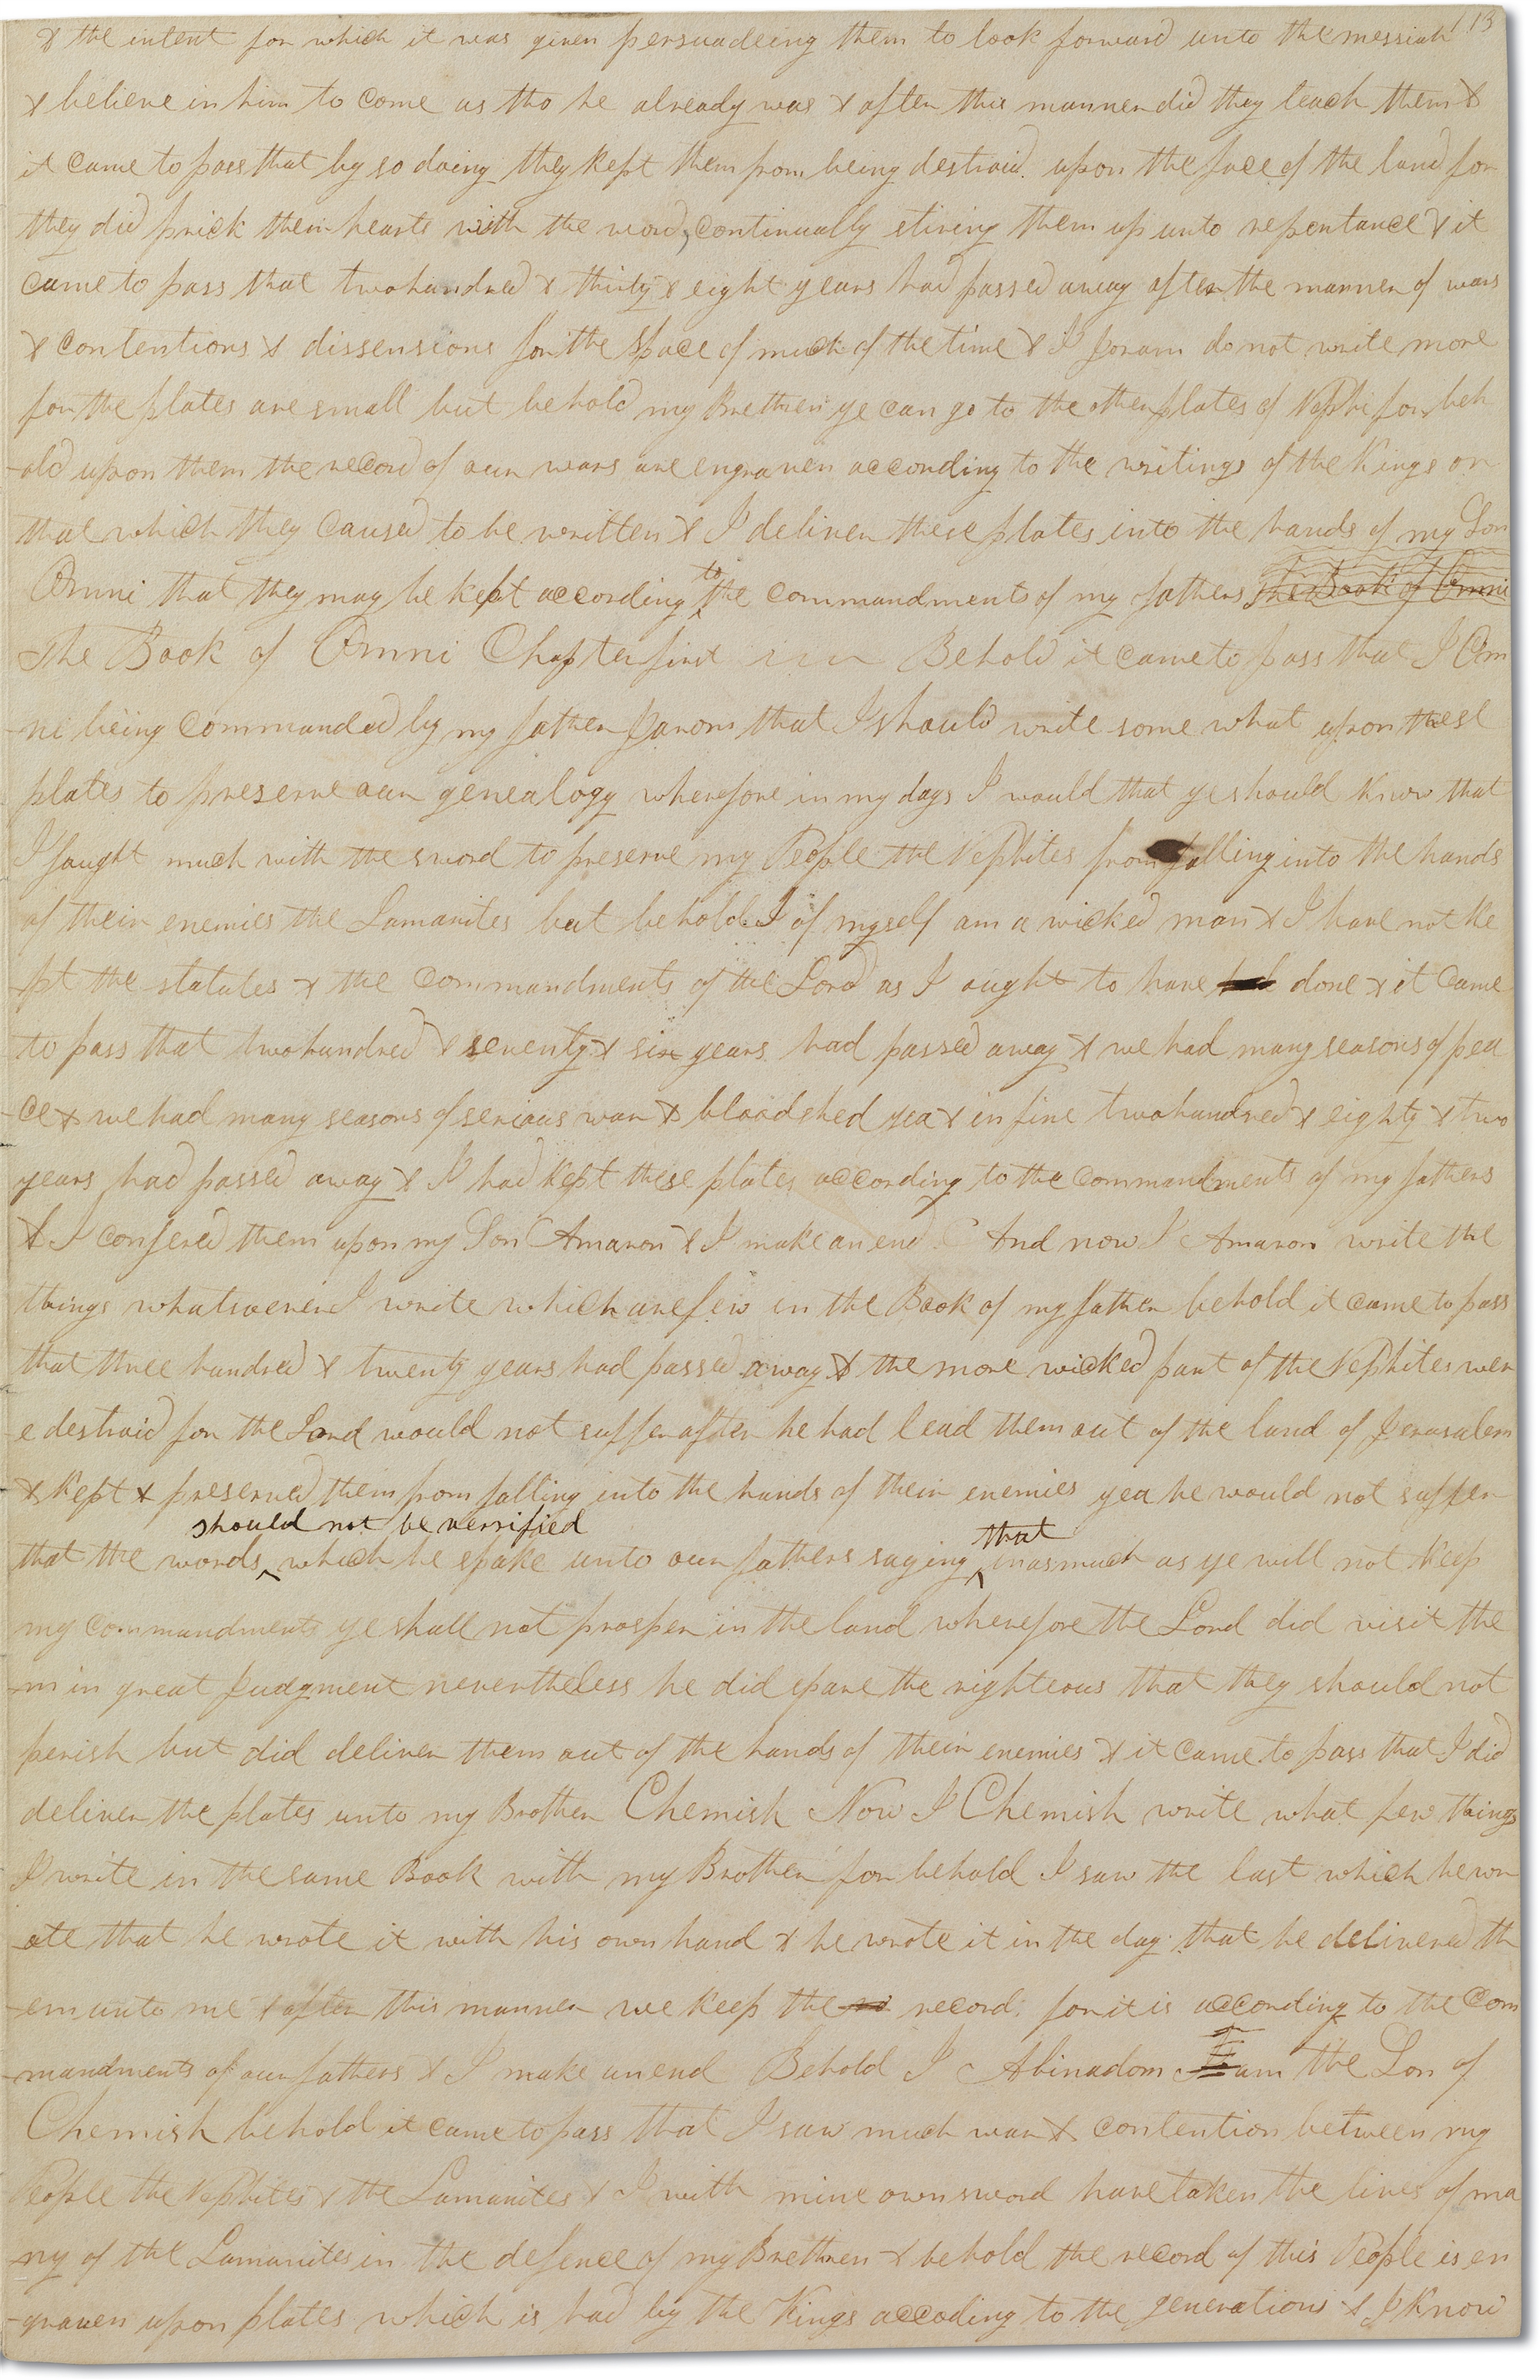 113
& the intent for which it was given persuadeing them to look forward unto the messiah
& believe in him to come as tho he already was & after this manner did they teach them &
it came to pass that by so doing they kept them from being destraid upon the face of the land for
they did prick their hearts with the word, continually stiring them up unto repentance & it
came to pass that two hundred & thirty & eight years had passed away after the manner of wars
& contentions & dissensions for the space of much of the time & I Joram do not write more
for the plates are small but behold my Brethren ye can go to the other plates of Nephi for beh
-old upon them the record of our wars are engraven according to the writings of the Kings or
that which they caused to be written & I deliver these plates into the hands of my Son
Omni that they may be kept according to the commandments of my fathers The Book of Omni
The Book of Omni Chapter first Behold it came to pass that I Om
-ni being commanded by my father Jarom that I should write some what upon these
plates to preserve our genealogy wherefore in my days I would that ye should know that
I faught much with the sword to preserve my People the Nephites from falling into the hands
of their enemies the Lamanites but behold I of myself am a wicked man & I have not ke
-pt the statutes & the commandments of the Lord as I ought to have done & it came
to pass that two hundred & seventy & six years had passed away & we had many seasons of pea
-ce & we had many seasons of serious war & bloodshed yea & in fine two hundred & eighty & two
years had passed away & I had kept these plates according to the commandments of my fathers
& I confered them upon my Son Amaron & I make an end And now I Amaron write the
things whatsoever I write which are few in the Book of my father behold it came to pass
that three hundred & twenty years had passed away & the more wicked part of the Nephites wer
-e destraid for the Lord would not suffer after he had lead them out of the land of Jerusalem
& kept & preserved them from falling into the hands of their enemies yea he would not suffer
that the words should not be verrified which he spake unto our fathers saying that inasmuch as ye will not keep
my commandments ye shall not prosper in the land wherefore the Lord did visit the
-m in great Judgment nevertheless he did spare the righteous that they should not
perish but did deliver them out of the hands of their enemies & it came to pass that I did
deliver the plates unto my Brother Chemish Now I Chemish write what few things
I write in the same Book with my Brother for behold I saw the last which he wr
-ote that he wrote it with his own hand & he wrote it in the day that he delivered th
-em unto me & after this manner we keep the record for it is according to the com
-mandments of our fathers & I make an end Behold I Abinadom I am the Son of
Chemish behold it came to pass that I saw much war & contention between my
People the Nephites & the Lamanites & I with mine own sword have taken the lives of ma
-ny of the Lamanites in the defence of my Brethren & behold the record of this People is en
-graven upon plates which is had by the Kings accoding to the generations & I know